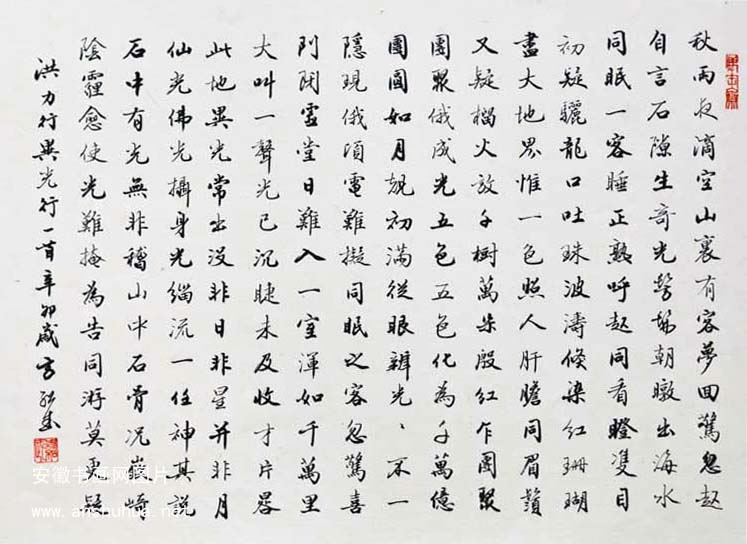 秋雨夜滴空山裏有客夢回驚忽起
自言石隙生奇光髣髴朝暾出海水
同眠一客睡正熟呼起同看瞪雙目
初疑驪龍口吐珠波濤倏染紅珊瑚
盡大地界惟一色照人肝膽同眉鬚
又疑榴火放千樹萬朵殷紅乍團聚
團聚俄成光五色五色化為千萬億
團圓如月規初滿從眼辨光、不一
隱現俄頃電難擬同眠之客忽驚喜
門閉虛堂日難入一室渾如千萬里
大叫一聲光已沉睫未及收才片晷
此地異光常出沒非日非星并非月
仙光佛光攝身光緇流一任神其說
石中有光無非稽山中石骨況
陰霾愈使光難掩為告同游莫更疑
洪力行異光行一首辛卯歲方
安徽书画网图片
www.anshuhua.net